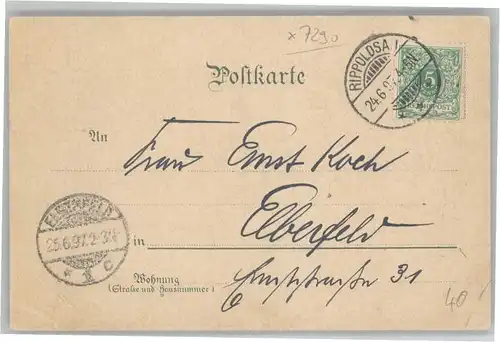 x 7290
Postkarte
RIPPOLDSAU
24.6.97. 4-5N.
5
REICHSPOST
An
Frau Ernst Koch
Elberfeld
ELBERFELD
25.6.97. 2-3
1 c
in
Ernststraße 31
Wohnung
(Straße und Hausnummer)
40,